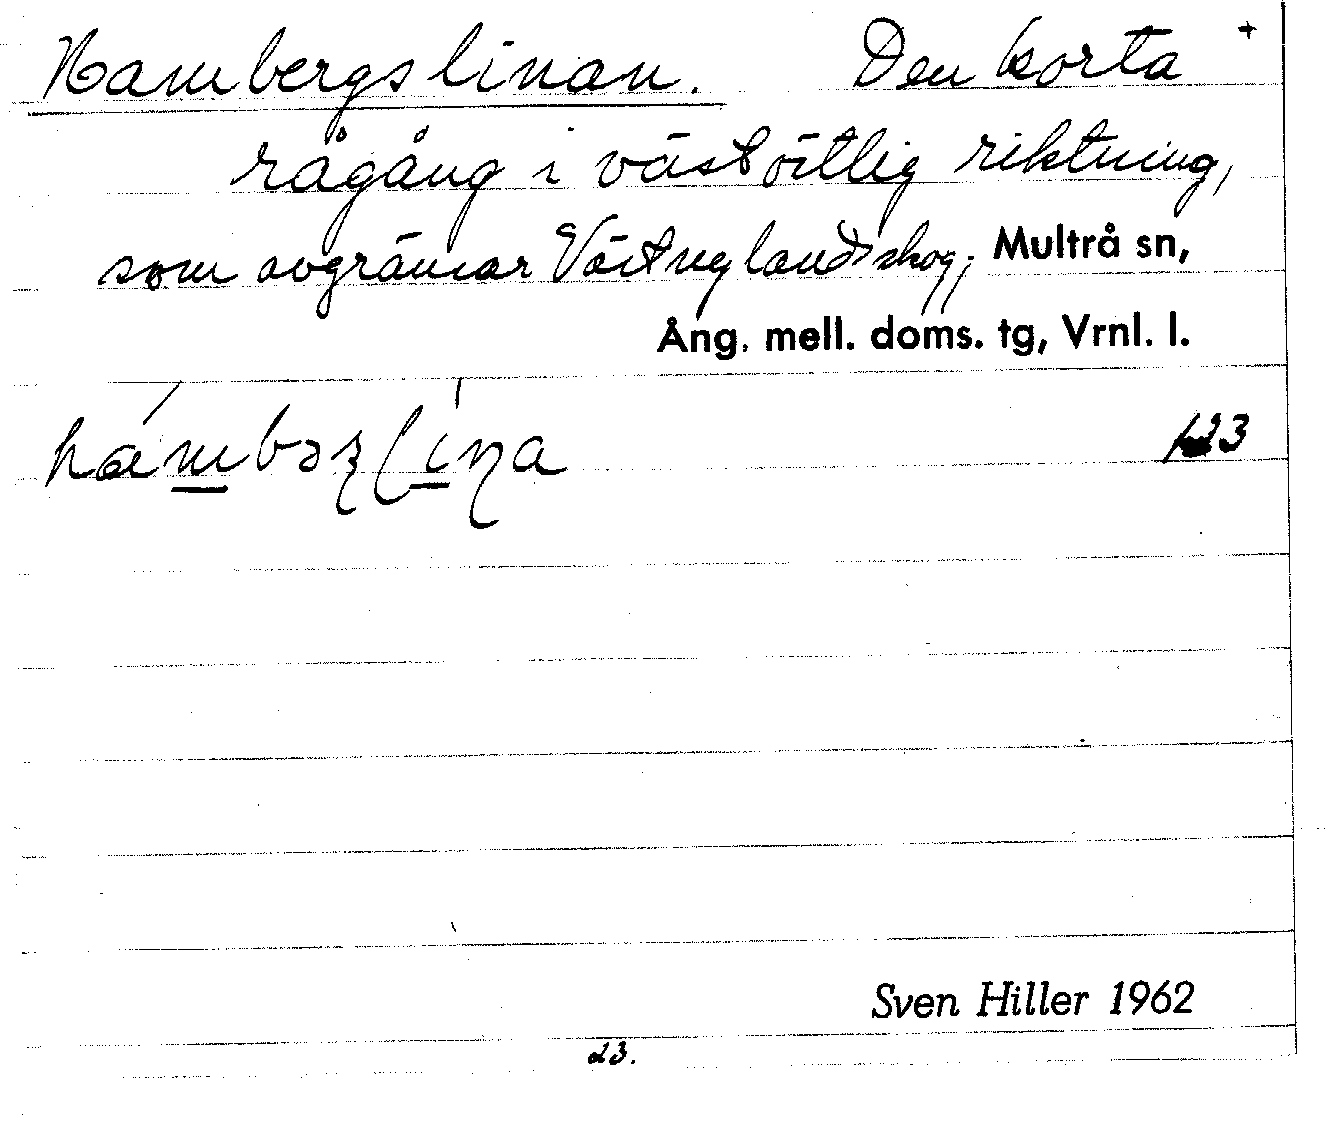 Hambergslinan. Den korta +
rågång i västöstlig riktning,
som avgränsar Västnylandsskog, Multrå sn,
Ång. mell. doms. tg, Vrnl. l.
23
Sven Hiller 1962
23.